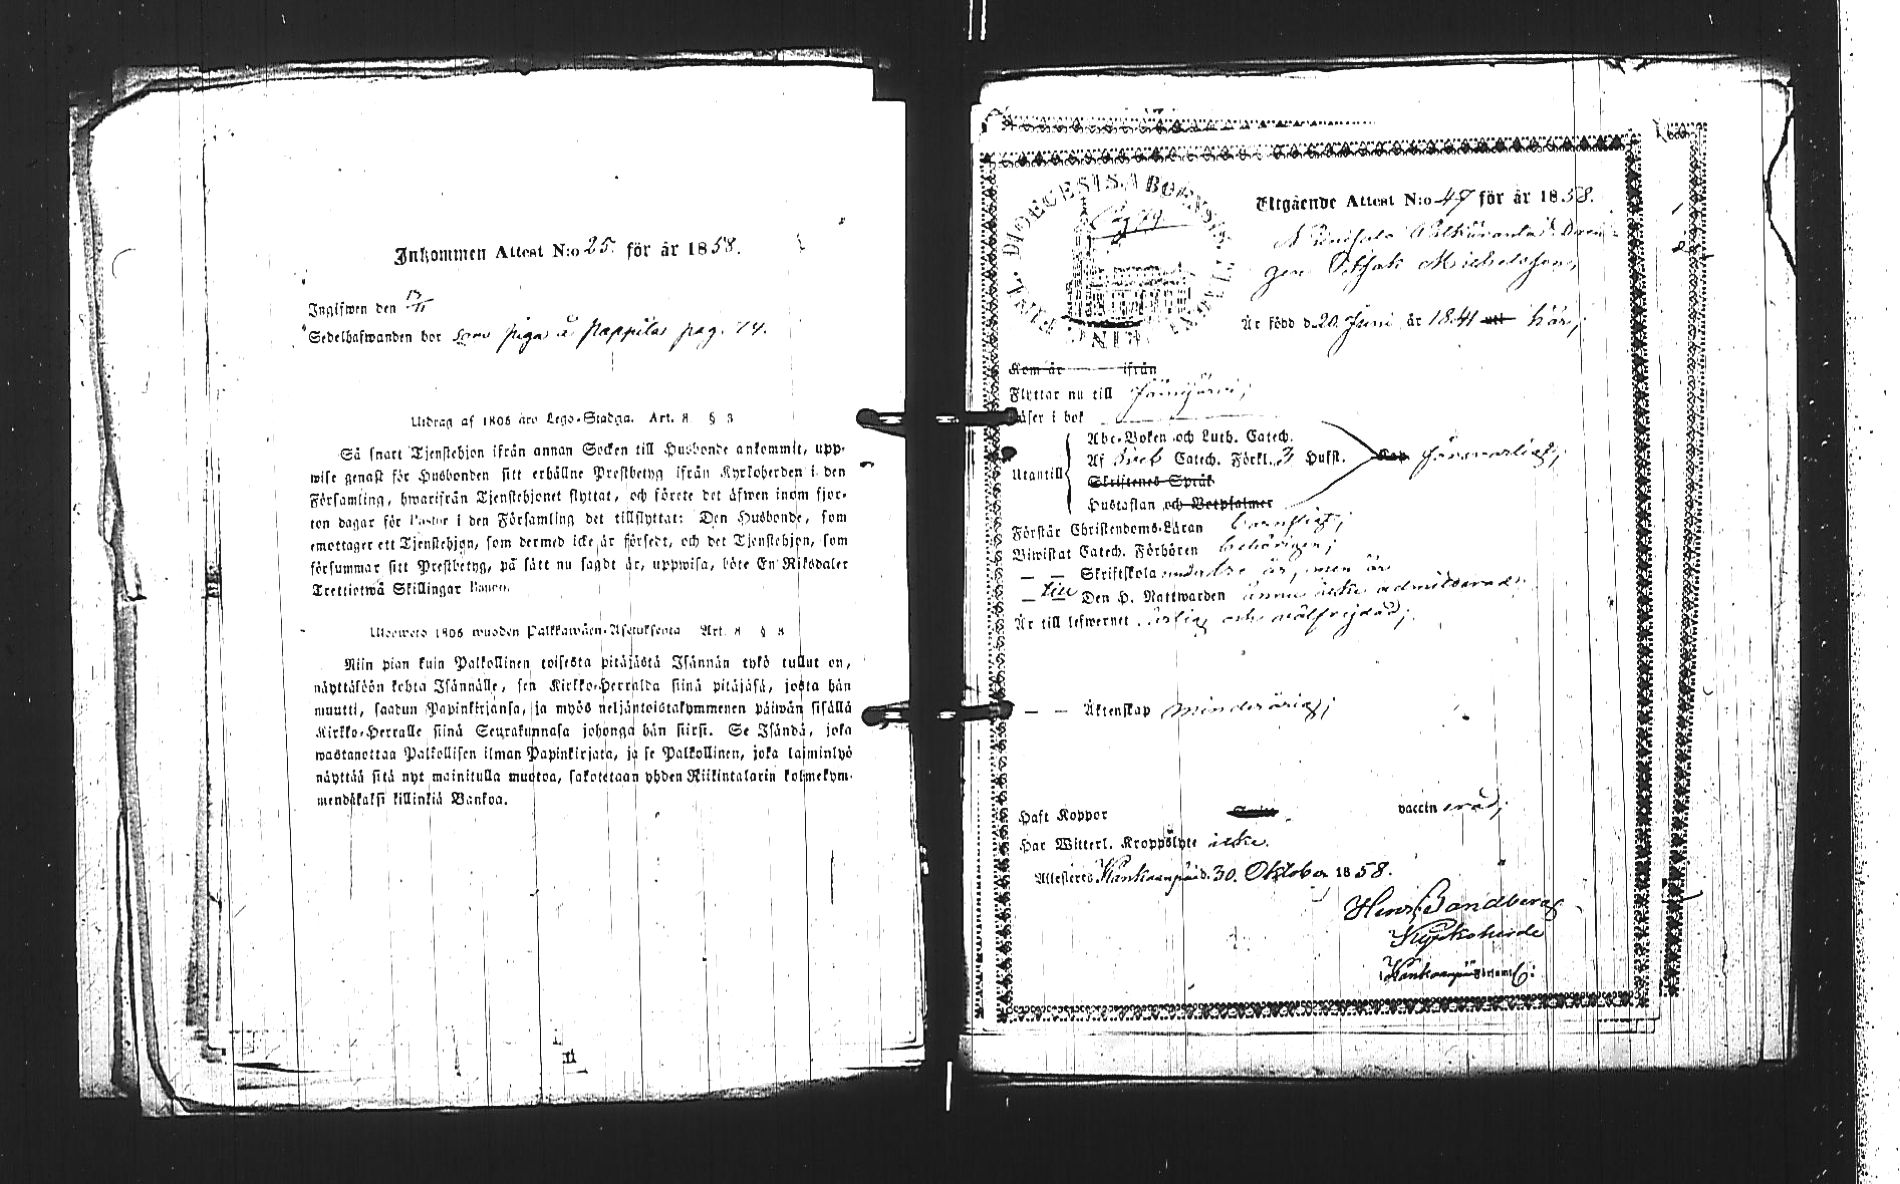 Inkommen Attest N:o 25. för år 1858.
Ingifwen den 13/11
Sedelhafwanden bor som piga å Pappilas pag. 74.
Utdrag af 1805 åro Lego-Stadga. Art. 8 § 3
Så snart Tjenstehjon ifrån annan Socken till Husbonde ankommit, upp-
wise genast för Husbonden sitt erhållne Prestbetyg ifrån Kyrkoherden i den
Församling, hwarifrån Tjenstehjonet flyttat, och förete det äfwen inom fjor-
ton dagar för Pastor i den Församling det tillflyttat: Den Husbonde, som
emottager ett Tjenstehjon, som dermed icke är försedt, och det Tjenstehjon, som
försummar sitt Prestbetyg, på sätt nu sagdt är, uppwisa, böte En Riksdaler
Trettiotwå Skillingar Banco.
Ulosweto 1805 wuoden Palkkawäen-Asetuksesta Art. 8 § 3
Niin pian kuin Palkollinen toisesta pitäjästä Isännän tykö tullut on,
näyttäköön kohta Isännälle, sen Kirkko-Herralda siinä pitäjäsä, josta hän
muutti, saadun Papinkirjansa, ja myös neljäntoistakymmenen päiwän sisällä
Kirkko-Herralle siinä Seurakunnasa johonga hän siirsi. Se Isändä, joka
wastanottaa Palkollisen ilman Papinkirjata, ja se Palkollinen, joka laiminlyö
näyttää sitä nyt mainitulla muotoa, sakotetaan yhden Riikintalarin kolmekym-
mendäkaksi killinkiä Bankoa.
FINL. DIOECESIS ABOENSIS
Pag 79.
Utgående Attest N:o 47 för år 1858.
Dren-
gen Michelsson,
Är född d. 20. Juni år 1841 här;
Kom år ifrån
Flyttar nu till Jämijärvi;
Läser i bok
Utantill
Abc-Boken och Luth. Catech.
Af Sveb Catech. Förkl. 3 Hufst. försvarligt;
Skriftenes Språk
Hustaflan och Botpsalmer
Förstår Christendoms-Läran barnsligt;
Biwistat Catech. Förhören behörigen;
— — Skriftskola är, men är
— till Den H. Nattwarden ännu icke admitterad;
Är till lefwernet ärlig och wälfrejdad;
— — Äktenskap minderårig;
Haft Koppor vaccin erad;
Har Witterl. Kroppslyte icke.
Attesteras Kankaanpää d. 30. Oktober 1858.
Henr. Sandberg
Kyrkoherde
Kankaanpää